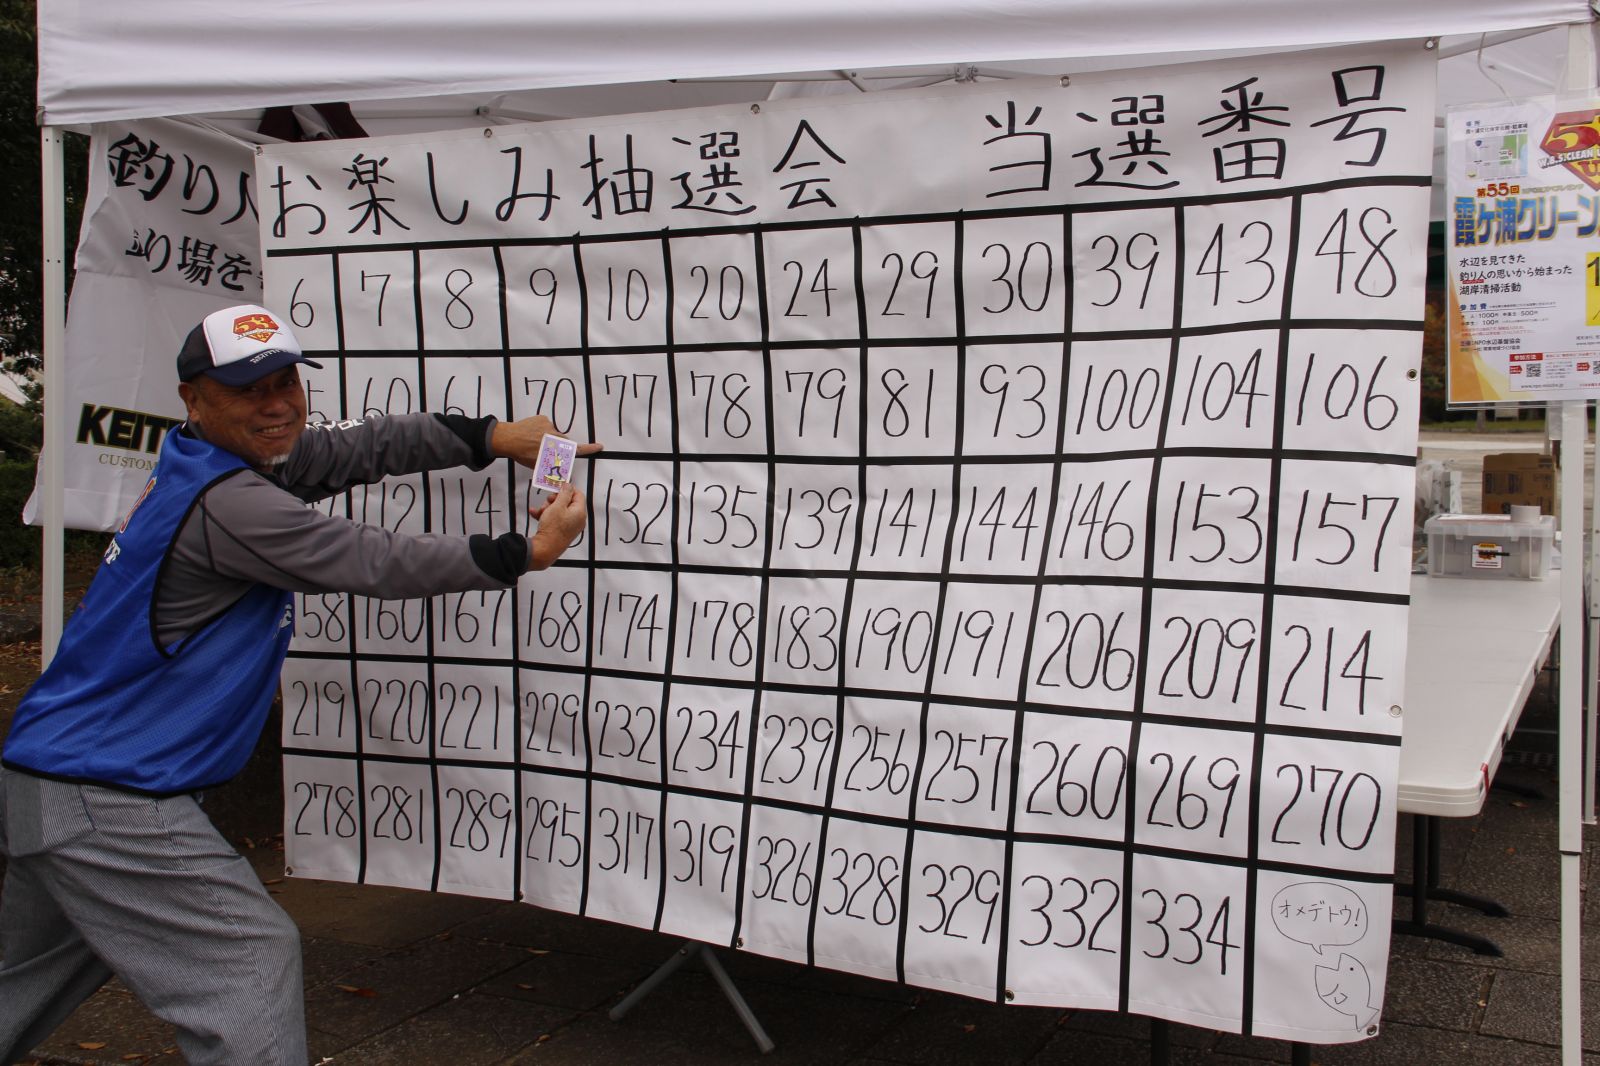 お楽しみ抽選会 当選番号
6 7 8 9 10 20 24 29 30 39 43 48
60 61 70 77 78 79 81 93 100 104 106
112 114 132 135 139 141 144 146 153 157
158 160 167 168 174 178 183 190 191 206 209 214
219 220 221 229 232 234 239 256 257 260 269 270
278 281 289 295 317 319 326 328 329 332 334
オメデトウ!
釣り人
り場を
KEIT
CUSTOM
場所
W.B.S.CLEAN U
第55回
霞ケ浦クリーン
水辺を見てきた
釣り人の思いから始まった
湖岸清掃活動
参加費
1000円
500円
100円
NPO水辺基盤協会
参加方法